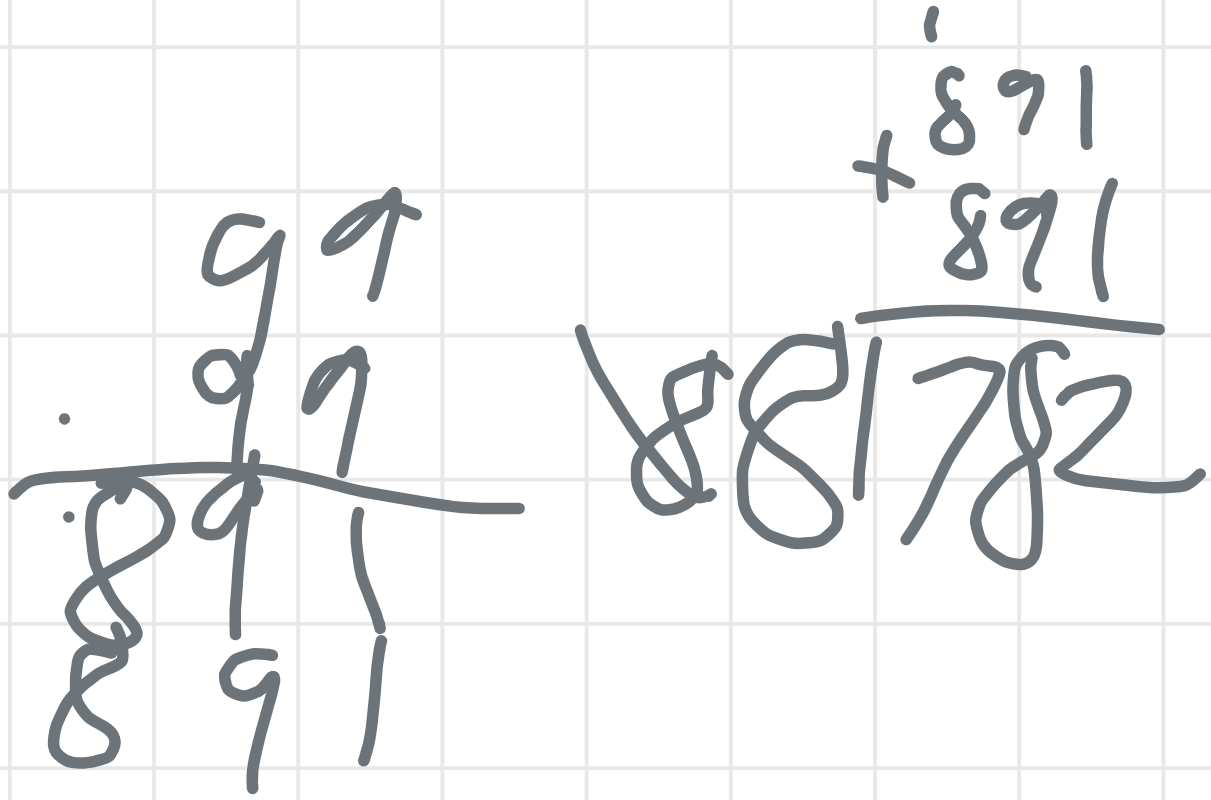 99
99
891
891
1
891
+ 891
\881782